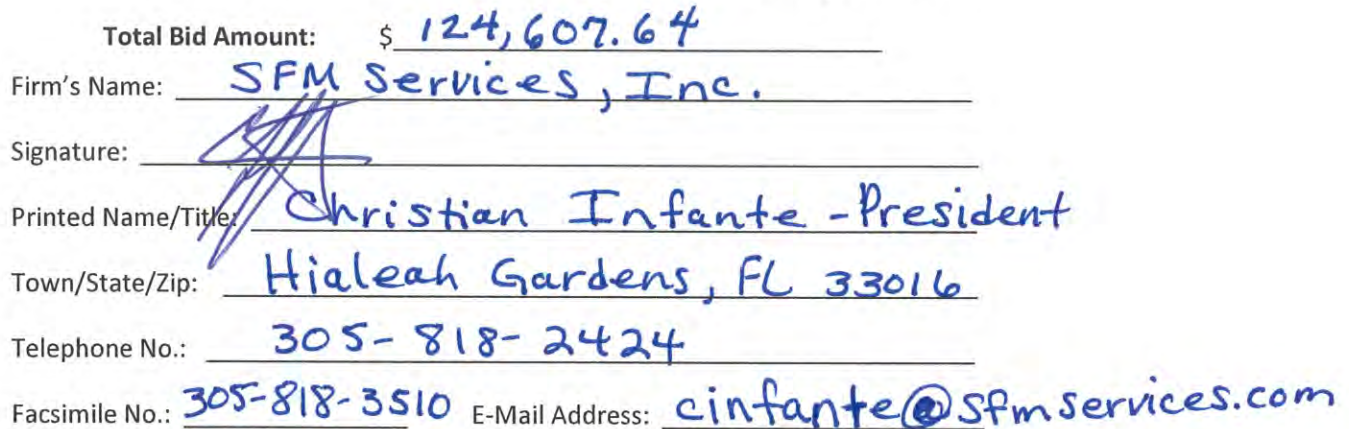 Total Bid Amount: $ 124,607.64
Firm's Name: SFM Services, Inc.
Signature:
Printed Name/Title: Christian Infante - President
Town/State/Zip: Hialeah Gardens, FL 33016
Telephone No.: 305-818-2424
Facsimile No.: 305-818-3510 E-Mail Address: cinfante@sfmservices.com